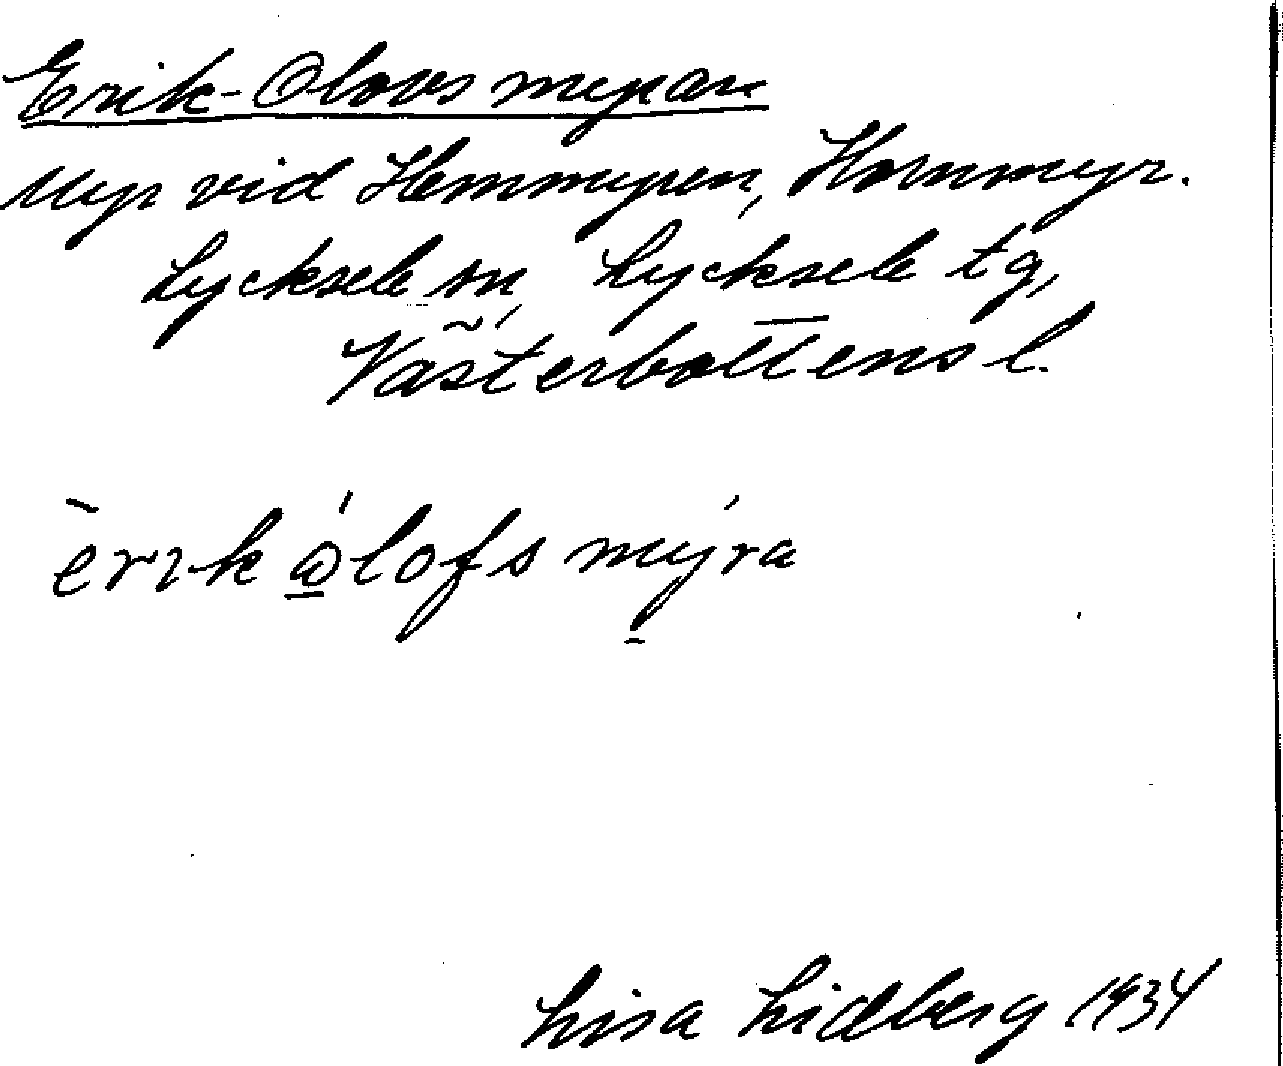 Erik-Olovsmyran
Myr vid Hemmyren, Hornmyr.
Lycksele sn, Lycksele tg,
Västerbottens l.
èrɩk ólofs mýra
Lisa Lidberg 1934